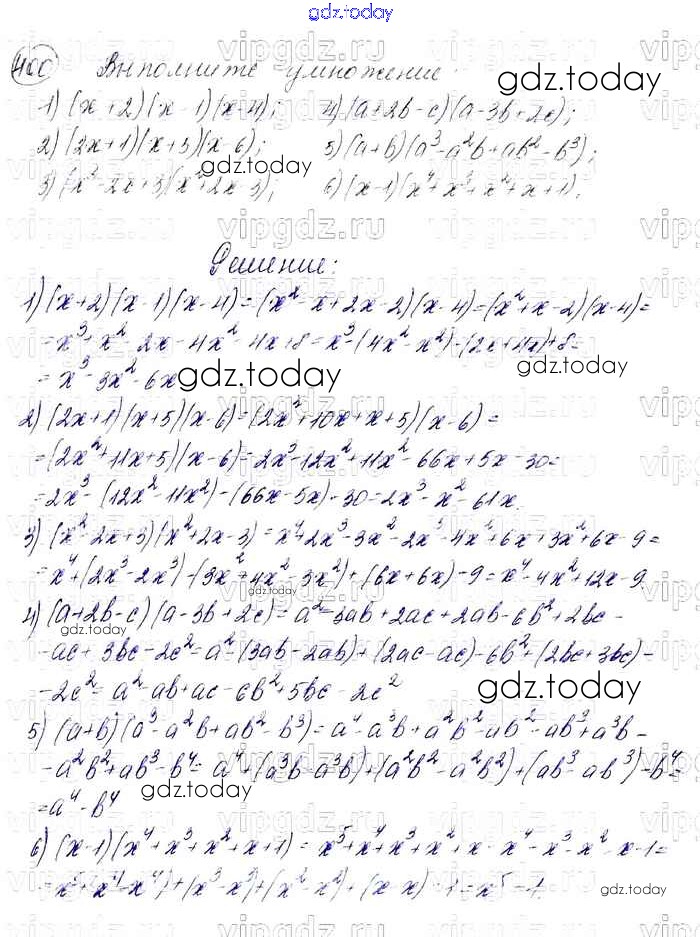 gdz.today
400 Выполните умножение:
1) (x+2)(x-1)(x-4); 4) (a+2b-c)(a-3b+2c);
2) (2x+1)(x+5)(x-6); 5) (a+b)(a³-a²b+ab²-b³);
3) (x²-2x+3)(x²+2x-3); 6) (x-1)(x⁴+x³+x²+x+1).
Решение:
1) (x+2)(x-1)(x-4)=(x²-x+2x-2)(x-4)=(x²+x-2)(x-4)=
=x³+x²-2x-4x²-4x+8=x³-(4x²-x²)-(2x+4x)+8=
=x³-3x²-6x
2) (2x+1)(x+5)(x-6)=(2x²+10x+x+5)(x-6)=
=(2x²+11x+5)(x-6)=2x³-12x²+11x²-66x+5x-30=
=2x³-(12x²-11x²)-(66x-5x)-30=2x³-x²-61x
3) (x²-2x+3)(x²+2x-3)=x⁴+2x³-3x²-2x³-4x²+6x+3x²+6x-9=
=x⁴+(2x³-2x³)-(3x²+4x²-3x²)+(6x+6x)-9=x⁴-4x²+12x-9
4) (a+2b-c)(a-3b+2c)=a²-3ab+2ac+2ab-6b²+2bc-
-ac+3bc-2c²=a²-(3ab-2ab)+(2ac-ac)-6b²+(2bc+3bc)-
-2c²=a²-ab+ac-6b²+5bc-2c²
5) (a+b)(a³-a²b+ab²-b³)=a⁴-a³b+a²b²-ab³+a³b-
-a²b²+ab³-b⁴=a⁴+(a³b-a³b)+(a²b²-a²b²)+(ab³-ab³)-b⁴=
=a⁴-b⁴
6) (x-1)(x⁴+x³+x²+x+1)=x⁵+x⁴+x³+x²+x-x⁴-x³-x²-x-1=
=x⁵+(x⁴-x⁴)+(x³-x³)+(x²-x²)+(x-x)-1=x⁵-1
gdz.today